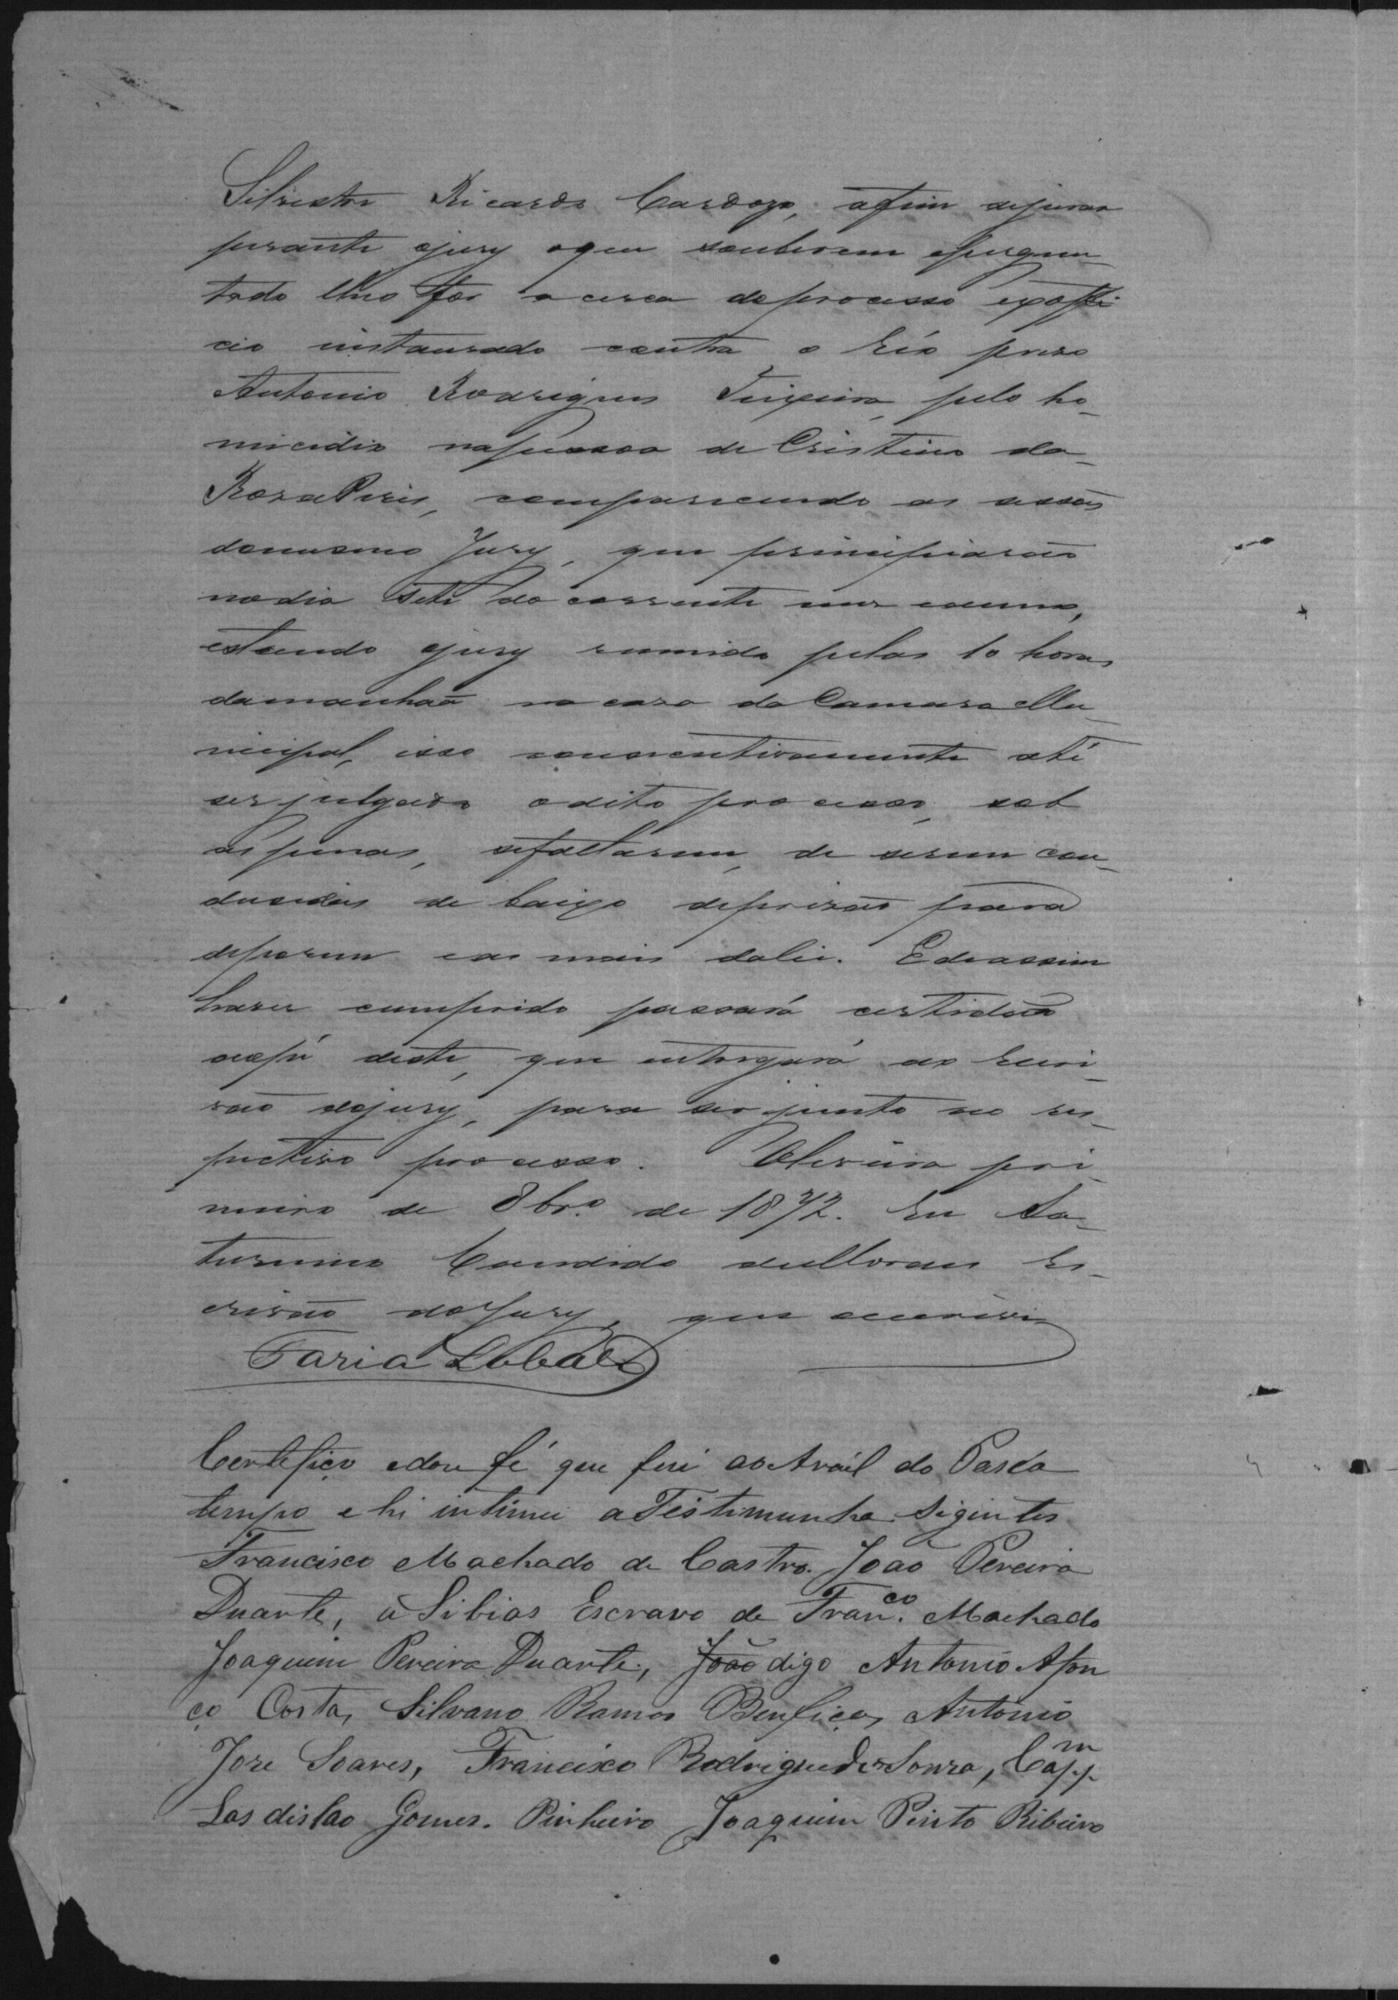 Silvestre Ricardo Cardozo, afim dejurar
perante ojury oque souberem eperguun-
tado lhes for acerca doprocesso exoffi
cio instaurado contra o Réo prezo
Antonio Rodrigues Teixeira, pelo ho-
micidio napessoa de Cristino da
Roza Peris, comparecendo as sessões
domesmo Jury, que principiarão
nodia sete do corrente mez
estando ojury reunido pelas 10 horas
damanhaã na caza da Camara Mu-
nicipal, isso consecutivamente até
ser julgado odito processo, sob
as penas, sefaltarem, de serem con-
dusidas de baixo deprizão para
deporem eas mais dalei. Edeassim
haver cumprido passará certidaõ
aopé deste, que entregará ao Escri-
vaõ dojury, para ser junto ao res-
pectivo processo. Oliveira pri-
meiro de 8br.º de 1872. Eu Sa-
turnino Candido deMoraes Es-
crivaõ doJury, que escrevi
Faria Lobato
Certefiço edou fé que fui ao Arail do Passa
tempo e hi intimei a Testimunha sigintes
Francisco Machado de Castro. Joaõ Pereira
Duarte, a Silias Escravo de Fran.co Machado
Joaquim Pereira Duarte, João digo Antonio Afon
ço Costa, Silvano Ramos Benfiça, Antonio
Joze Soares, Francisco Rodrigues de Souza, Capp.m
Lasdislao Gomes. Pinheiro Joaquim Pinto Ribeiro